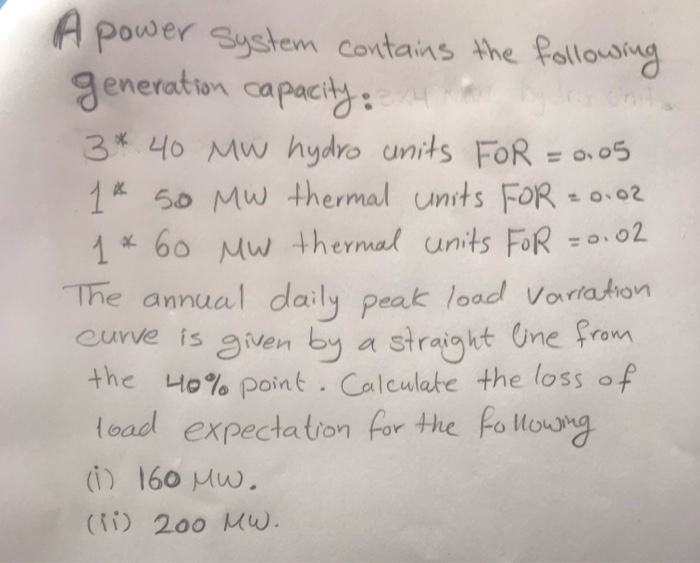 A power system contains the following
generation capacity:
3* 40 MW hydro units FOR = 0.05
1* 50 MW thermal units FOR = 0.02
1* 60 MW thermal units FOR = 0.02
The annual daily peak load variation
curve is given by a straight line from
the 40% point. Calculate the loss of
load expectation for the following
(i) 160 MW.
(ii) 200 MW.